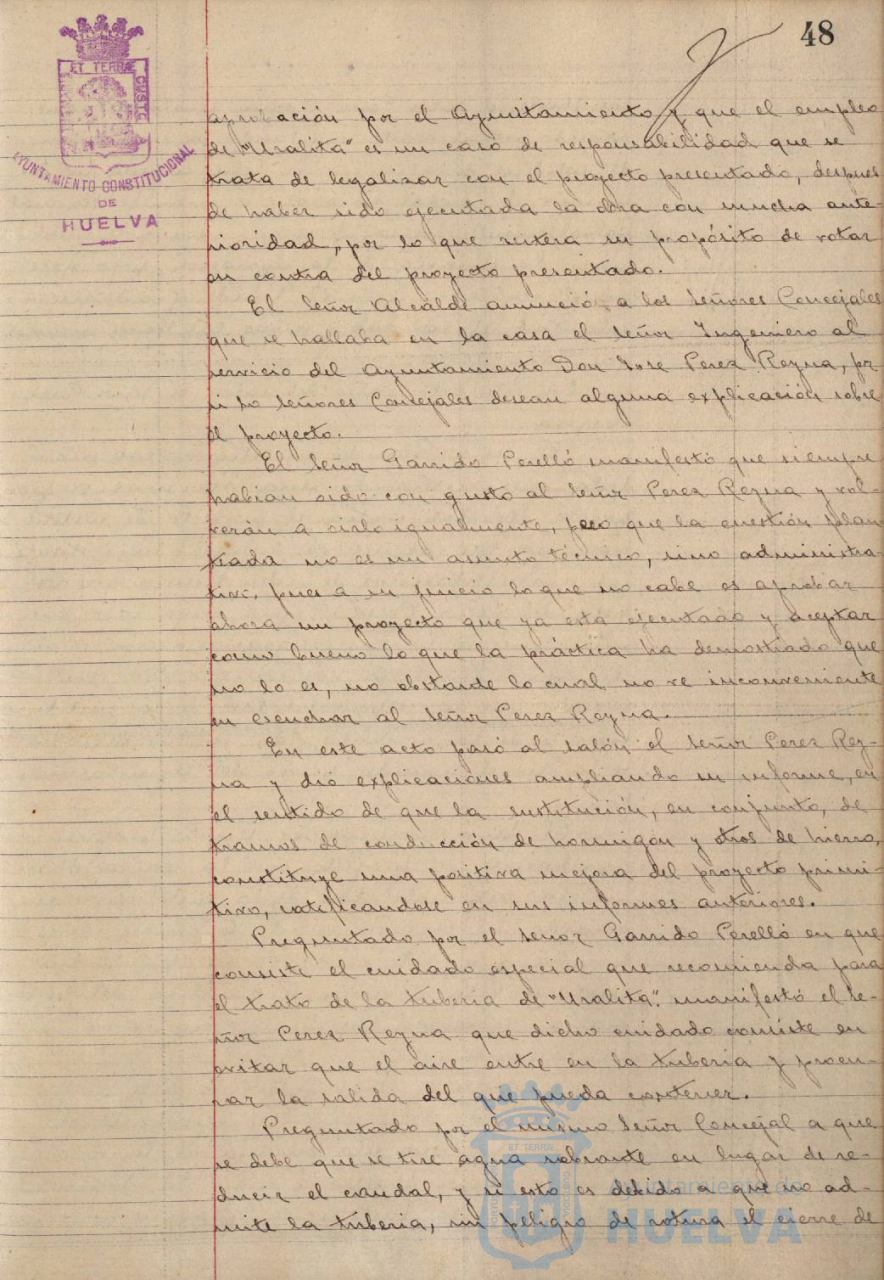 48
ET TERRÆ CUSTO
AYUNTAMIENTO CONSTITUCIONAL
DE
HUELVA
aprobación por el Ayuntamiento y que el empleo
de "Uralita" es un caso de responsabilidad que se
trata de legalizar con el proyecto presentado, despues
de haber sido ejecutada la obra con mucha ante-
rioridad, por lo que reitera su propósito de votar
en contra del proyecto presentado.
El Señor Alcalde anunció a los Señores Concejales
que se hallaba en la casa el Señor Ingeniero al
servicio del Ayuntamiento Don Jose Perez Reyna, por
si lo Señores Concejales desean alguna explicación sobre
el proyecto.
El Señor Garrido Perelló manifestó que siempre
habian oido con gusto al Señor Perez Reyna y vol-
verán a oirlo igualmente, pero que la cuestión plan-
teada no es un asunto técnico, sino administra-
tivo, pues a su juicio lo que no cabe es aprobar
ahora un proyecto que ya está ejecutado y aceptar
como bueno lo que la práctica ha demostrado que
no lo es, no obstante lo cual no ve inconveniente
en escuchar al Señor Perez Reyna.
En este acto pasó al salón el Señor Perez Rey-
na y dió explicaciones ampliando su informe, en
el sentido de que la sustitución, en conjunto, de
tramos de conducción de hormigón y otros de hierro,
constituye una positiva mejora del proyecto primi-
tivo, ratificandose en sus informes anteriores.
Preguntado por el Señor Garrido Perelló en que
consiste el cuidado especial que recomienda para
el trato de la tuberia de "Uralita", manifestó el Se-
ñor Perez Reyna que dicho cuidado consiste en
evitar que el aire entre en la tuberia y procu-
rar la salida del que pueda contener.
Preguntado por el mismo Señor Concejal a que
se debe que se tire agua sobrante en lugar de re-
ducir el caudal, y si esto es debido a que no ad-
mite la tuberia, sin peligro de rotura el cierre de
Ayuntamiento de
HUELVA